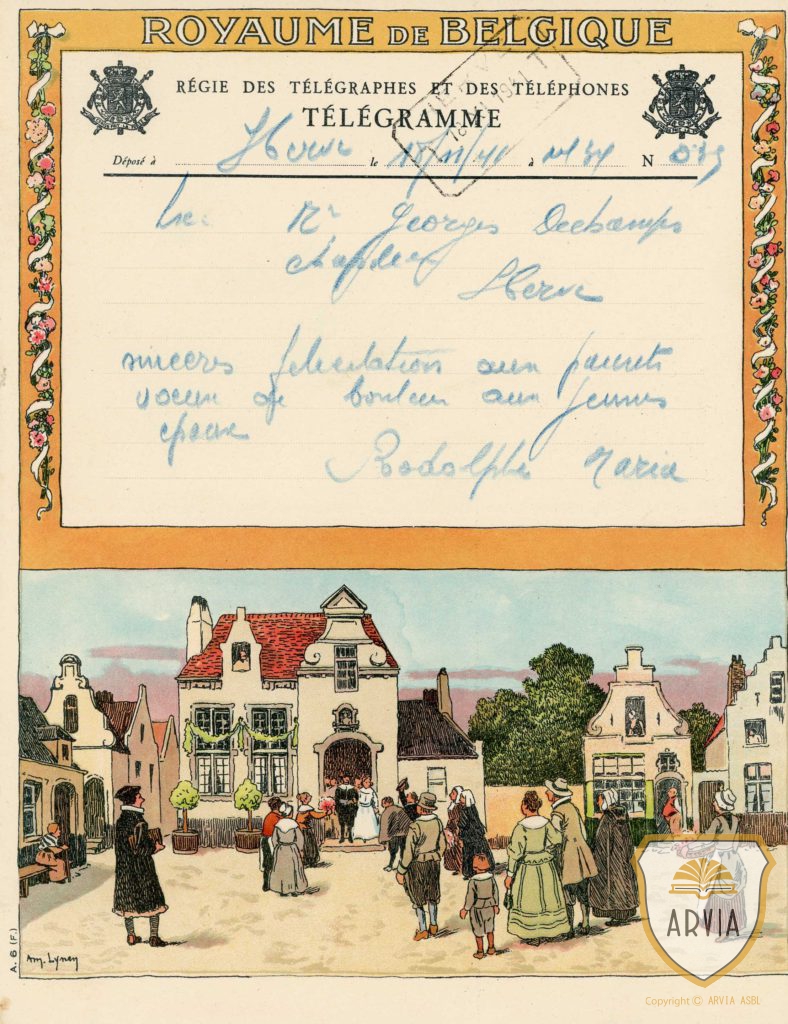 ROYAUME DE BELGIQUE
RÉGIE DES TÉLÉGRAPHES ET DES TÉLÉPHONES
TÉLÉGRAMME
Déposé à Herve le 18/11/41 à N
Mr Georges Dechamps
Herve
sinceres felicitations aux parents
voeux de bonheur aux jeunes
epoux
Rodolphe Maria
A. 6 (F.)
Am. Lynen
ARVIA
Copyright © ARVIA ASBL